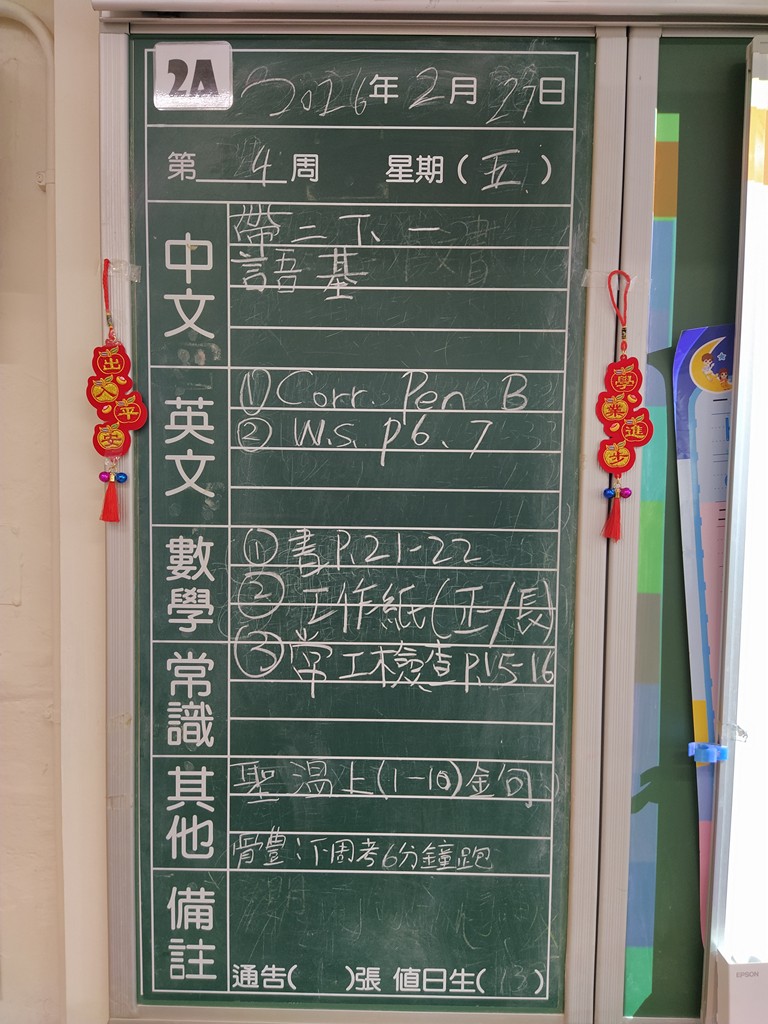 2A 2026年2月27日
第4周 星期(五)
中文
帶二下、一
語基
英文
① Corr. Pen B
② W.S. p6、7
數學
① 書P.21-22
② 工作紙(正/長)
常識
③ 常工檢查P.15-16
其他
聖溫上(1-10)金句
骨豊:下周考6分鐘跑
備註
通告( )張 值日生(13)
出入平安
學業進步
EPSON